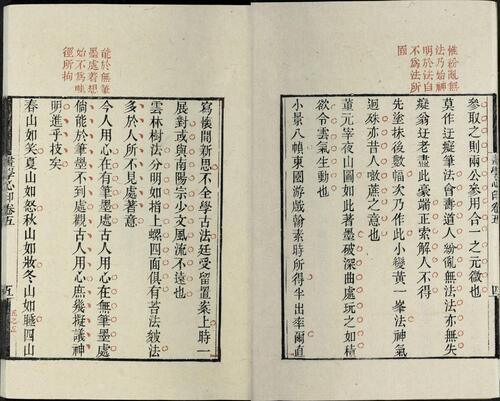 惟紛亂無
法乃始神
明於法自
不為法所
囿
參取之則兩公參用合一之元微也
莫作迂癡筆法會壽道人紛亂無法法亦無失
癡翁迂老盡此豪端正索解人不得
先塗抹後數幅次乃作此小變黃一峯法神氣
迥殊亦昔人噉蔗之意也
董元宰夜山圖如此著墨破深曲處玩之如積
欲令雲氣生動也
小景八幀東園游戲翰素時所得半出率爾直
能於無筆
墨處着想
始不為畦
徑所拘
寫懷閒新思不全學古法廷受留置案上時一
展對或與南陽宗少文風流不遠也
雲林樹法分明如指上螺四面俱有苔法皴法
多於人所不見處著意
今人用心在有筆墨處古人用心在無筆墨處
倘能於筆墨不到處觀古人用心庶幾擬議神
明進乎技矣
春山如笑夏山如怒秋山如妝冬山如睡四山
畫學心印卷五
五